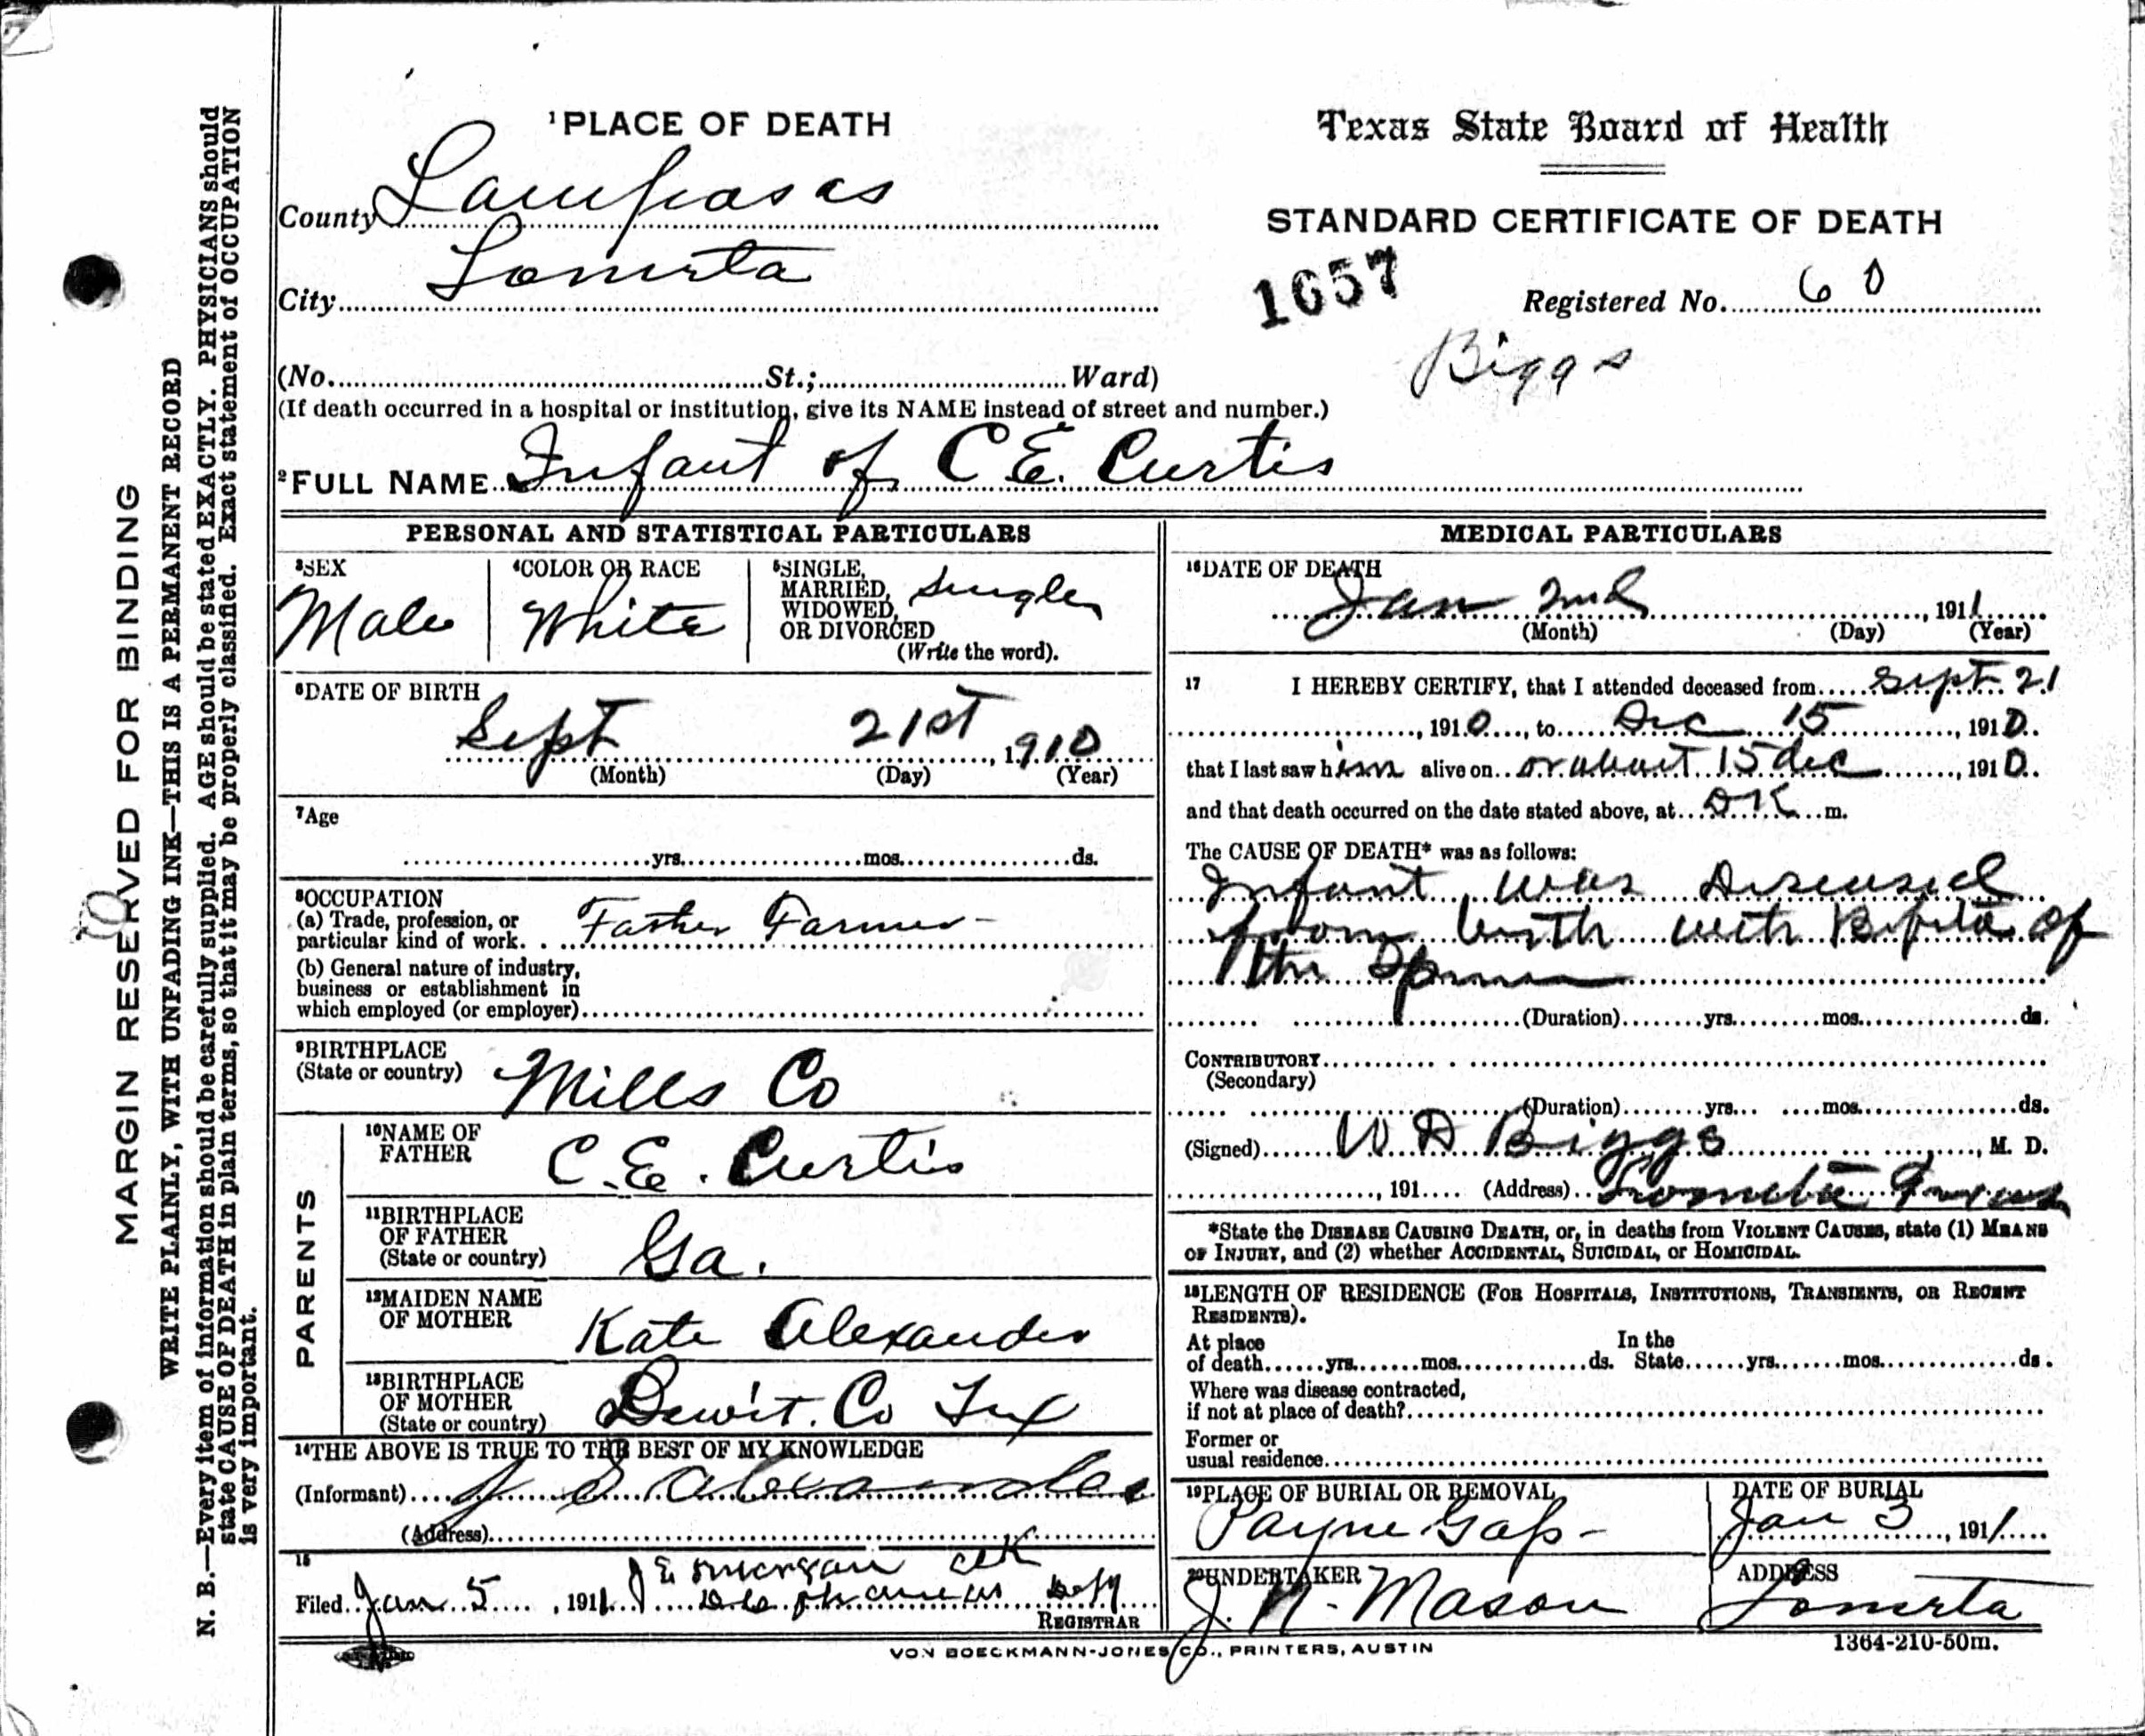 ¹PLACE OF DEATH
Texas State Board of Health
County Lampasas
STANDARD CERTIFICATE OF DEATH
City Lometa
1657
Registered No. 60
(No. St.; Ward)
Biggs
(If death occurred in a hospital or institution, give its NAME instead of street and number.)
²FULL NAME Infant of C E. Curtis
PERSONAL AND STATISTICAL PARTICULARS
³SEX
Male
⁴COLOR OR RACE
White
⁵SINGLE,
MARRIED,
WIDOWED,
OR DIVORCED
(Write the word).
Single
⁶DATE OF BIRTH
Sept 21st, 1910
(Month) (Day) (Year)
⁷Age
yrs. mos. ds.
⁸OCCUPATION
(a) Trade, profession, or
particular kind of work. Father Farmer
(b) General nature of industry,
business or establishment in
which employed (or employer)
⁹BIRTHPLACE
(State or country) Mills Co
PARENTS
¹⁰NAME OF
FATHER C.E. Curtis
¹¹BIRTHPLACE
OF FATHER
(State or country) Ga.
¹²MAIDEN NAME
OF MOTHER Kate Alexander
¹³BIRTHPLACE
OF MOTHER
(State or country) Dewit. Co Tex
¹⁴THE ABOVE IS TRUE TO THE BEST OF MY KNOWLEDGE
(Informant) J S Alexander
(Address)
15
J E Morgan clk
Filed Jan 5, 1911
REGISTRAR
MEDICAL PARTICULARS
¹⁶DATE OF DEATH
Jan 2nd, 1911
(Month) (Day) (Year)
17 I HEREBY CERTIFY, that I attended deceased from Sept 21
, 1910, to Dec 15, 1910.
that I last saw him alive on or about 15 dec, 1910.
and that death occurred on the date stated above, at DK m.
The CAUSE OF DEATH* was as follows:
Infant was Diseased
from birth with Bifida of
the Spine
(Duration) yrs. mos. ds.
CONTRIBUTORY
(Secondary)
(Duration) yrs. mos. ds.
(Signed) W D Biggs, M. D.
, 191 (Address) Lometa Texas
*State the DISEASE CAUSING DEATH, or, in deaths from VIOLENT CAUSES, state (1) MEANS
OF INJURY, and (2) whether ACCIDENTAL, SUICIDAL, or HOMICIDAL.
¹⁸LENGTH OF RESIDENCE (FOR HOSPITALS, INSTITUTIONS, TRANSIENTS, OR RECENT
RESIDENTS).
At place In the
of death yrs. mos. ds. State yrs. mos. ds.
Where was disease contracted,
if not at place of death?
Former or
usual residence
¹⁹PLACE OF BURIAL OR REMOVAL
Payne Gap
DATE OF BURIAL
Jan 3, 1911
²⁰UNDERTAKER
J. N. Mason
ADDRESS
Lometa
VON BOECKMANN-JONES CO., PRINTERS, AUSTIN
1364-210-50m.
MARGIN RESERVED FOR BINDING
WRITE PLAINLY, WITH UNFADING INK—THIS IS A PERMANENT RECORD
N. B.—Every item of information should be carefully supplied. AGE should be stated EXACTLY. PHYSICIANS should
state CAUSE OF DEATH in plain terms, so that it may be properly classified. Exact statement of OCCUPATION
is very important.